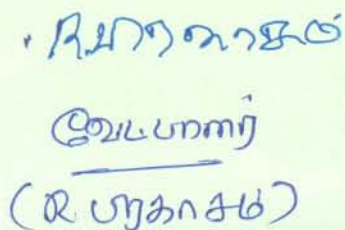 R பிரகாசம்
வேட்பாளர்
(R. பிரகாசம்)